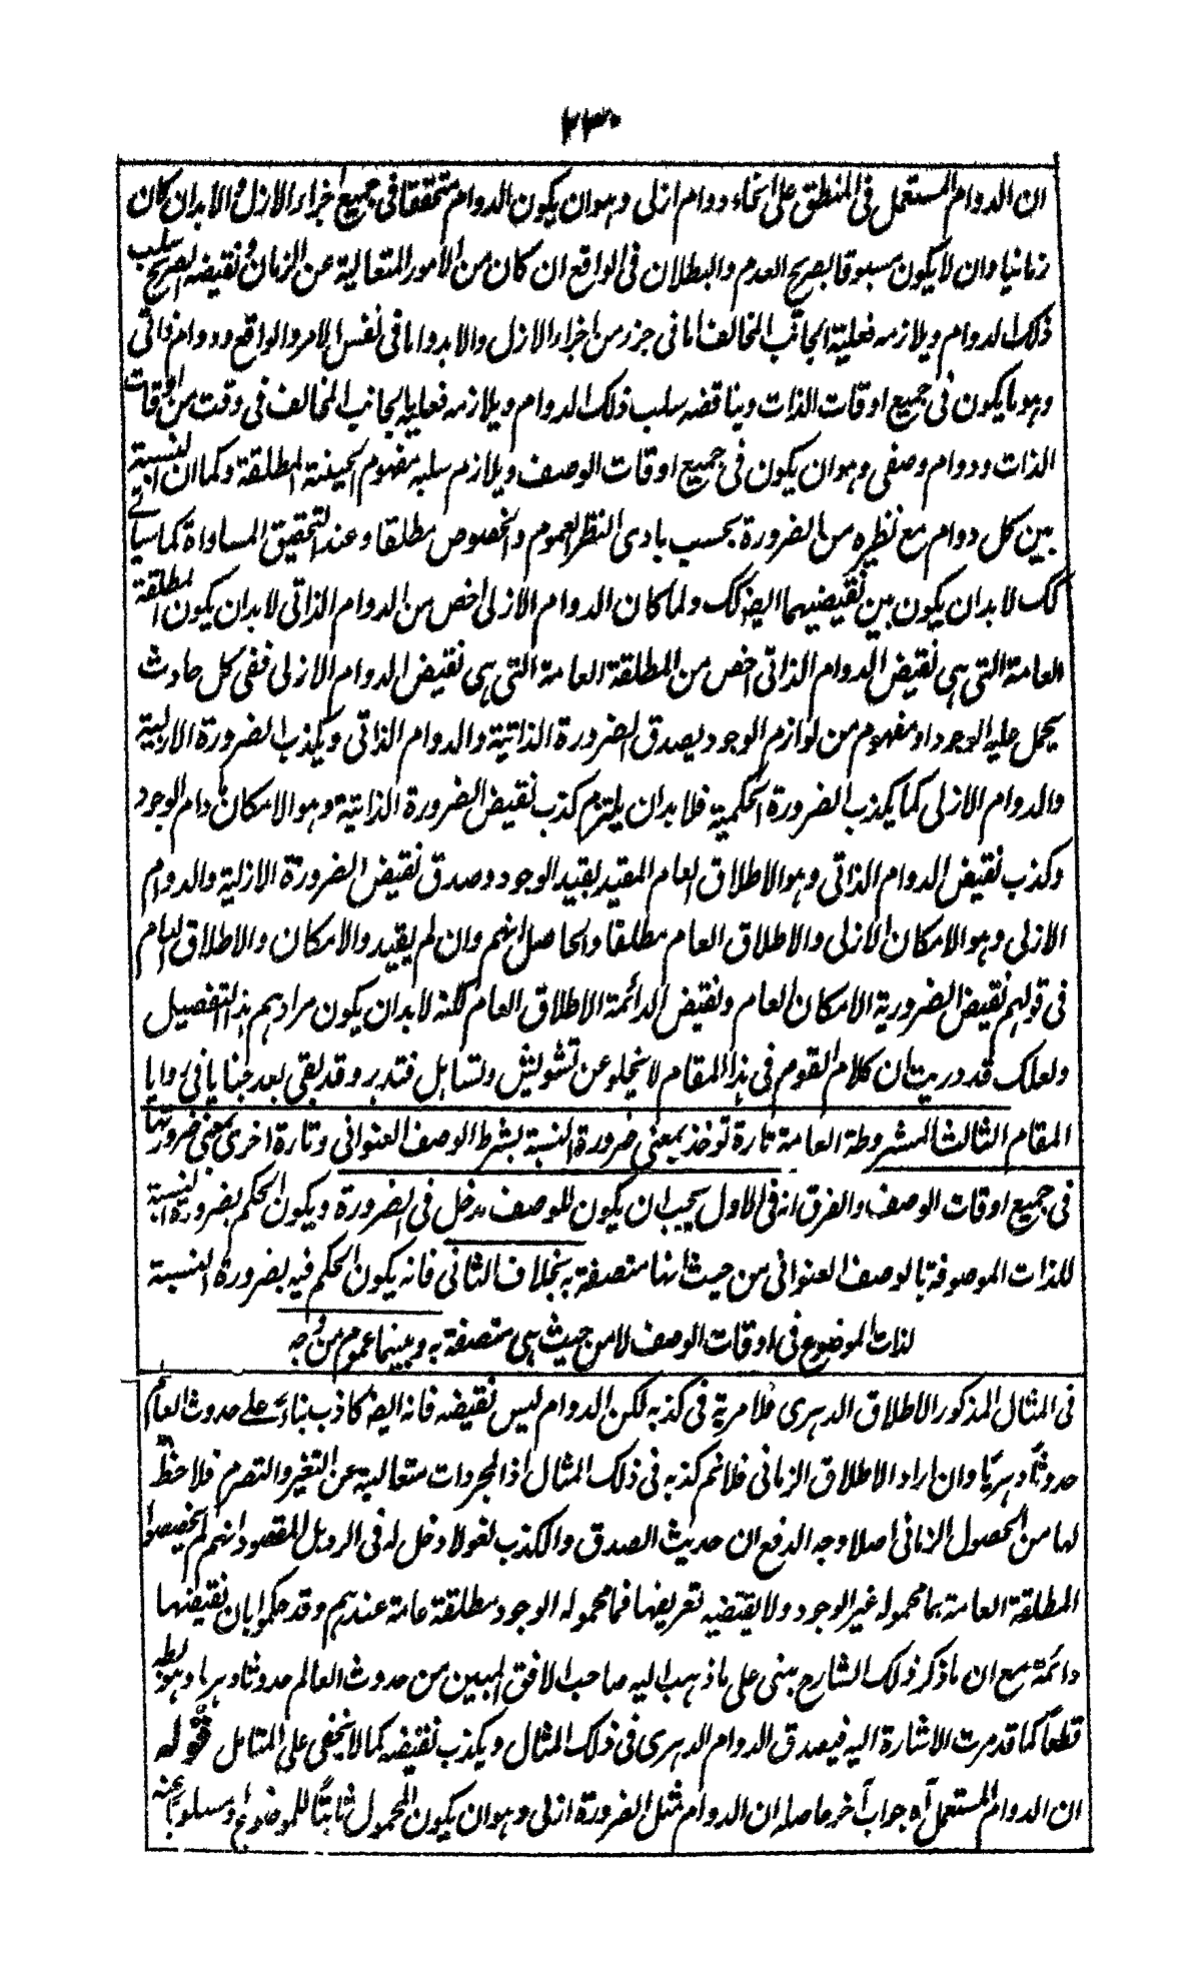 ٢٣٠
ان الدوام المستعمل فى المنطق على انحاء دوام ازلى وهو ان يكون الدوام متحققا فى جميع اجزاء الازل والابد ان كان
زمانيا وان لا يكون مسبوقا بصريح العدم والبطلان فى الواقع ان كان من الامور المتعالية عن الزمان ونقيضه الصريح سلب
ذلك الدوام ويلازمه فعلية الجانب المخالف اما فى جزء من اجزاء الازل والابد واما فى نفس الامر والواقع ودوام ذاتى
وهو ما يكون فى جميع اوقات الذات ويناقضه سلب ذلك الدوام ويلازمه فعلية الجانب المخالف فى وقت من اوقات
الذات ودوام وصفى وهو ان يكون فى جميع اوقات الوصف ويلازم سلبه مفهوم الحينية المطلقة وكما ان النسبة
بين كل دوام مع نظيره من الضرورة بحسب بادى النظر العموم والخصوص مطلقا وعند التحقيق المساواة كما سياتے
كك لا بد ان يكون بين نقيضيهما ايضا كك ولما كان الدوام الازلى اخص من الدوام الذاتى لا بد ان يكون المطلقة
العامة التى هى نقيض الدوام الذاتى اخص من المطلقة العامة التى هى نقيض الدوام الازلى ففى كل حادث
يحمل عليه الوجود او مفهوم من لوازم الوجود يصدق الضرورة الذاتية والدوام الذاتى ويكذب الضرورة الازلية
والدوام الازلى كما يكذب الضرورة الحكمية فلا بد ان يلتزم كذب نقيض الضرورة الذاتية وهو الامكان ما دام الوجود
وكذب نقيض الدوام الذاتى وهو الاطلاق العام المقيد بقيد الوجود وصدق نقيض الضرورة الازلية والدوام
الازلى وهو الامكان الازلى والاطلاق العام مطلقا والحاصل انهم وان لم يقيدوا الامكان والاطلاق العام
فى قولهم نقيض الضرورية الامكان العام ونقيض الدائمة الاطلاق العام لكنه لا بد ان يكون مرادهم هذا التفصيل
ولعلك قد دريت ان كلام القوم فى هذا المقام لا يخلو عن تشويش وتساهل فتدبر وقد بقى بعد خبايا فى زوايا
المقام الثالث المشروطة العامة تارة توخذ بمعنى ضرورة النسبة بشرط الوصف العنوانى وتارة اخرى بمعنى ضرورتها
فى جميع اوقات الوصف والفرق انه فى الاول يجب ان يكون للوصف مدخل فى الضرورة ويكون الحكم بضرورة النسبة
للذات الموصوفة بالوصف العنوانى من حيث انها متصفة به بخلاف الثانى فانه يكون الحكم فيه بضرورة النسبة
لذات الموضوع فى اوقات الوصف لا من حيث هى متصفة به وبينهما عموم من وجه
فى المثال المذكور الاطلاق الدهرى فلا مرية فى كذبه لكن الدوام ليس نقيضه فانه ايضا كاذب بناءً على حدوث العالم
حدوثًا دهريًا وان اراد الاطلاق الزمانى فلا نم كذبه فى ذلك المثال اذ المجردات متعالية عن التغير والتصرم فلا حظ
لها من الحصول الزمانى اصلا وجه الدفع ان حديث الصدق والكذب لغو لا دخل له فى الرد بل المقصود انهم لم يخصصوا
المطلقة العامة بما محموله غير الوجود ولا يقتضيه تعريفها فما محموله الوجود مطلقة عامة عندهم وقد حكموا بان نقيضها
دائمة مع ان ما ذكر ذلك الشارح مبنى على ما ذهب اليه صاحب الافق المبين من حدوث العالم حدوثا دهريا وهو باطل
قطعاً كما قد مرت الاشارة اليه فيصدق الدوام الدهرى فى ذلك المثال ويكذب نقيضه كما لا يخفى على المتامل قوله
ان الدوام المستعمل آه جواب آخر حاصله ان الدوام مثل الضرورة ازلى وهو ان يكون المحمول ثابتًا للموضوع او مسلوبًا عنه